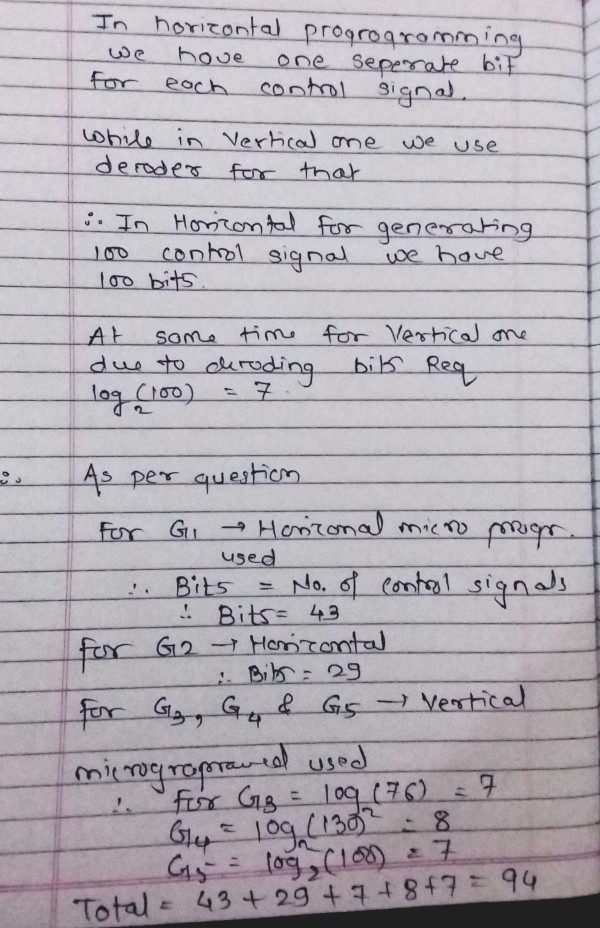 In horizontal progrogramming
we have one seperate bit
for each control signal.
while in vertical one we use
deroder for that
∴ In Horizontal for generating
100 control signal we have
100 bits.
At same time for Vertical one
due to deroding bits Req
log₂(100) = 7.
∴ As per question
For G1 → Horizonal micro progr.
used
∴ Bits = No. of control signals
∴ Bits = 43
for G2 → Horizontal
∴ Bits = 29
for G3, G4 & G5 → Vertical
used
∴ for G3 = log₂(76) = 7
G4 = log₂(130) = 8
G5 = log₂(100) = 7
Total = 43 + 29 + 7 + 8 + 7 = 94